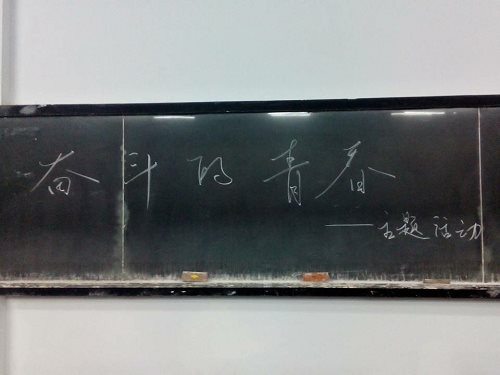 奋斗的青春
——主题活动